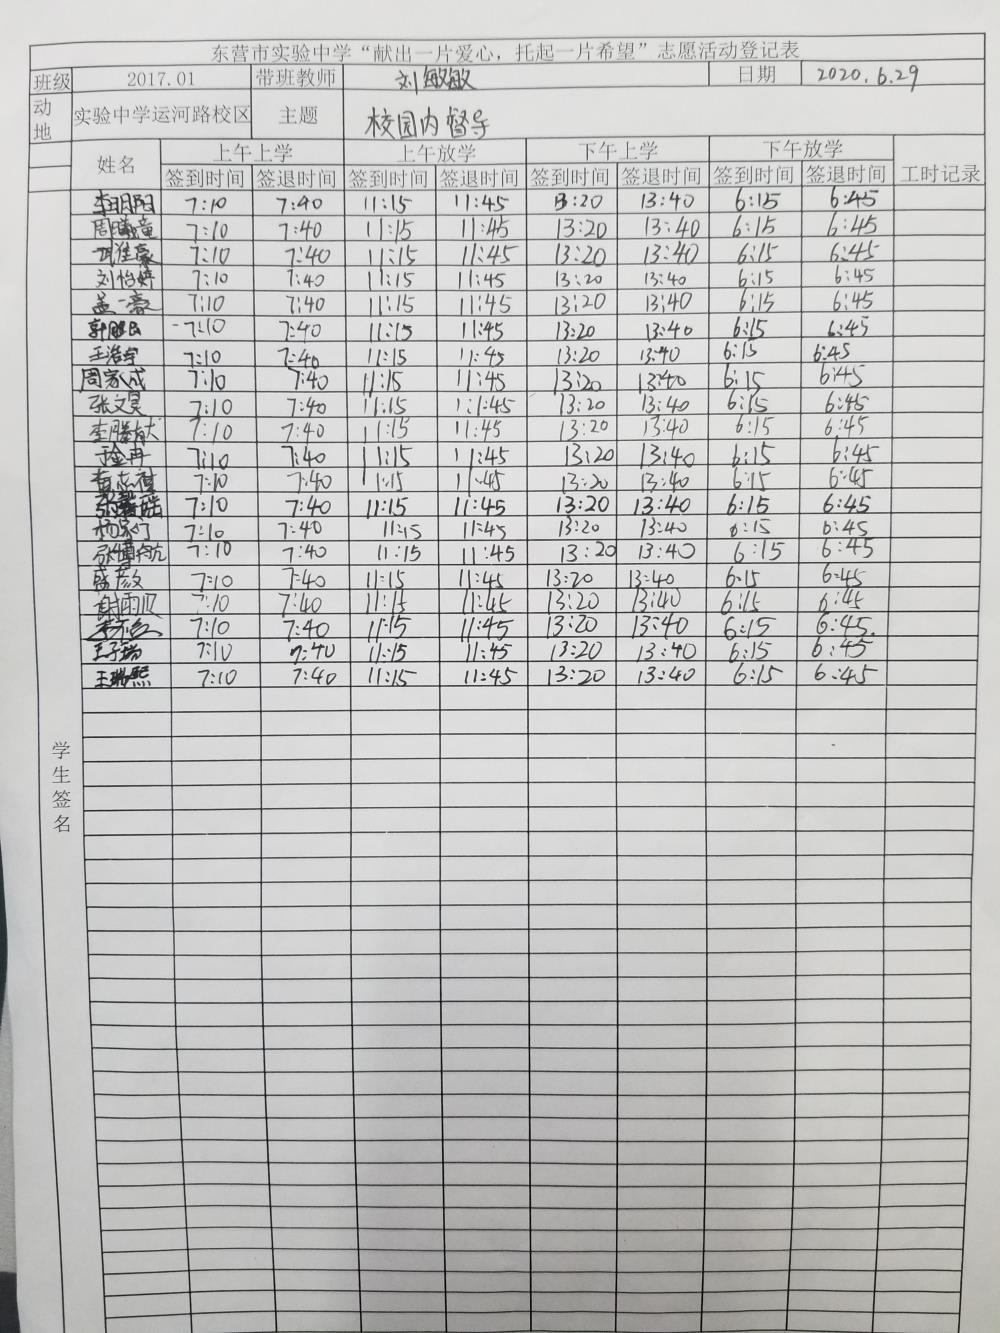 东营市实验中学“献出一片爱心，托起一片希望”志愿活动登记表
班级 2017.01 带班教师 刘敏敏 日期 2020.6.29
动地 实验中学运河路校区 主题 校园内督导
姓名 上午上学 上午放学 下午上学 下午放学 工时记录
签到时间 签退时间 签到时间 签退时间 签到时间 签退时间 签到时间 签退时间
李明阳 7:10 7:40 11:15 11:45 13:20 13:40 6:15 6:45
周曦童 7:10 7:40 11:15 11:45 13:20 13:40 6:15 6:45
7:10 7:40 11:15 11:45 13:20 13:40 6:15 6:45
刘怡婷 7:10 7:40 11:15 11:45 13:20 13:40 6:15 6:45
孟一豪 7:10 7:40 11:15 11:45 13:20 13:40 6:15 6:45
7:10 7:40 11:15 11:45 13:20 13:40 6:15 6:45
王浩宇 7:10 7:40 11:15 11:45 13:20 13:40 6:15 6:45
周家成 7:10 7:40 11:15 11:45 13:20 13:40 6:15 6:45
张文昊 7:10 7:40 11:15 11:45 13:20 13:40 6:15 6:45
李腾献 7:10 7:40 11:15 11:45 13:20 13:40 6:15 6:45
于金冉 7:10 7:40 11:15 11:45 13:20 13:40 6:15 6:45
7:10 7:40 11:15 11:45 13:20 13:40 6:15 6:45
7:10 7:40 11:15 11:45 13:20 13:40 6:15 6:45
7:10 7:40 11:15 11:45 13:20 13:40 6:15 6:45
张博航 7:10 7:40 11:15 11:45 13:20 13:40 6:15 6:45
盛彦文 7:10 7:40 11:15 11:45 13:20 13:40 6:15 6:45
7:10 7:40 11:15 11:45 13:20 13:40 6:15 6:45
7:10 7:40 11:15 11:45 13:20 13:40 6:15 6:45.
王子瑞 7:10 7:40 11:15 11:45 13:20 13:40 6:15 6:45
王瑞熙 7:10 7:40 11:15 11:45 13:20 13:40 6:15 6:45
学生签名